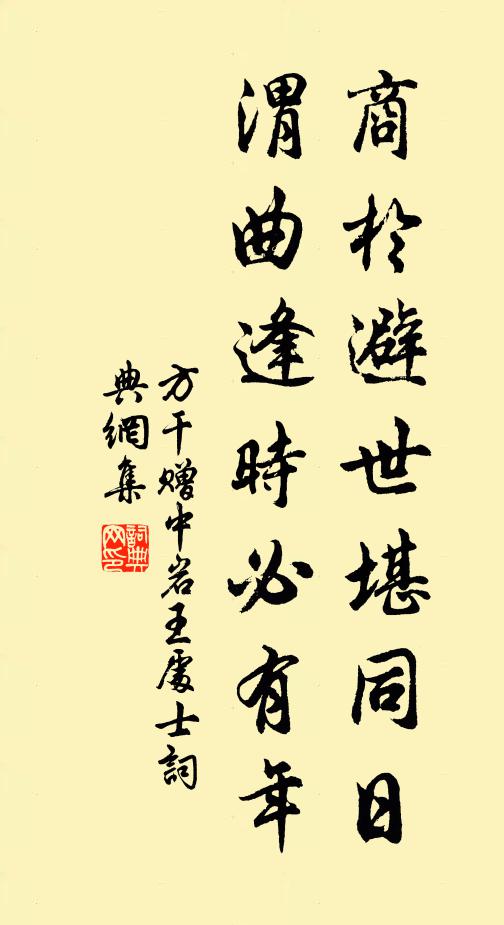 商於避世堪同日
渭曲逢時必有年
方干贈中岩王處士詞
典網集
詞典
网印